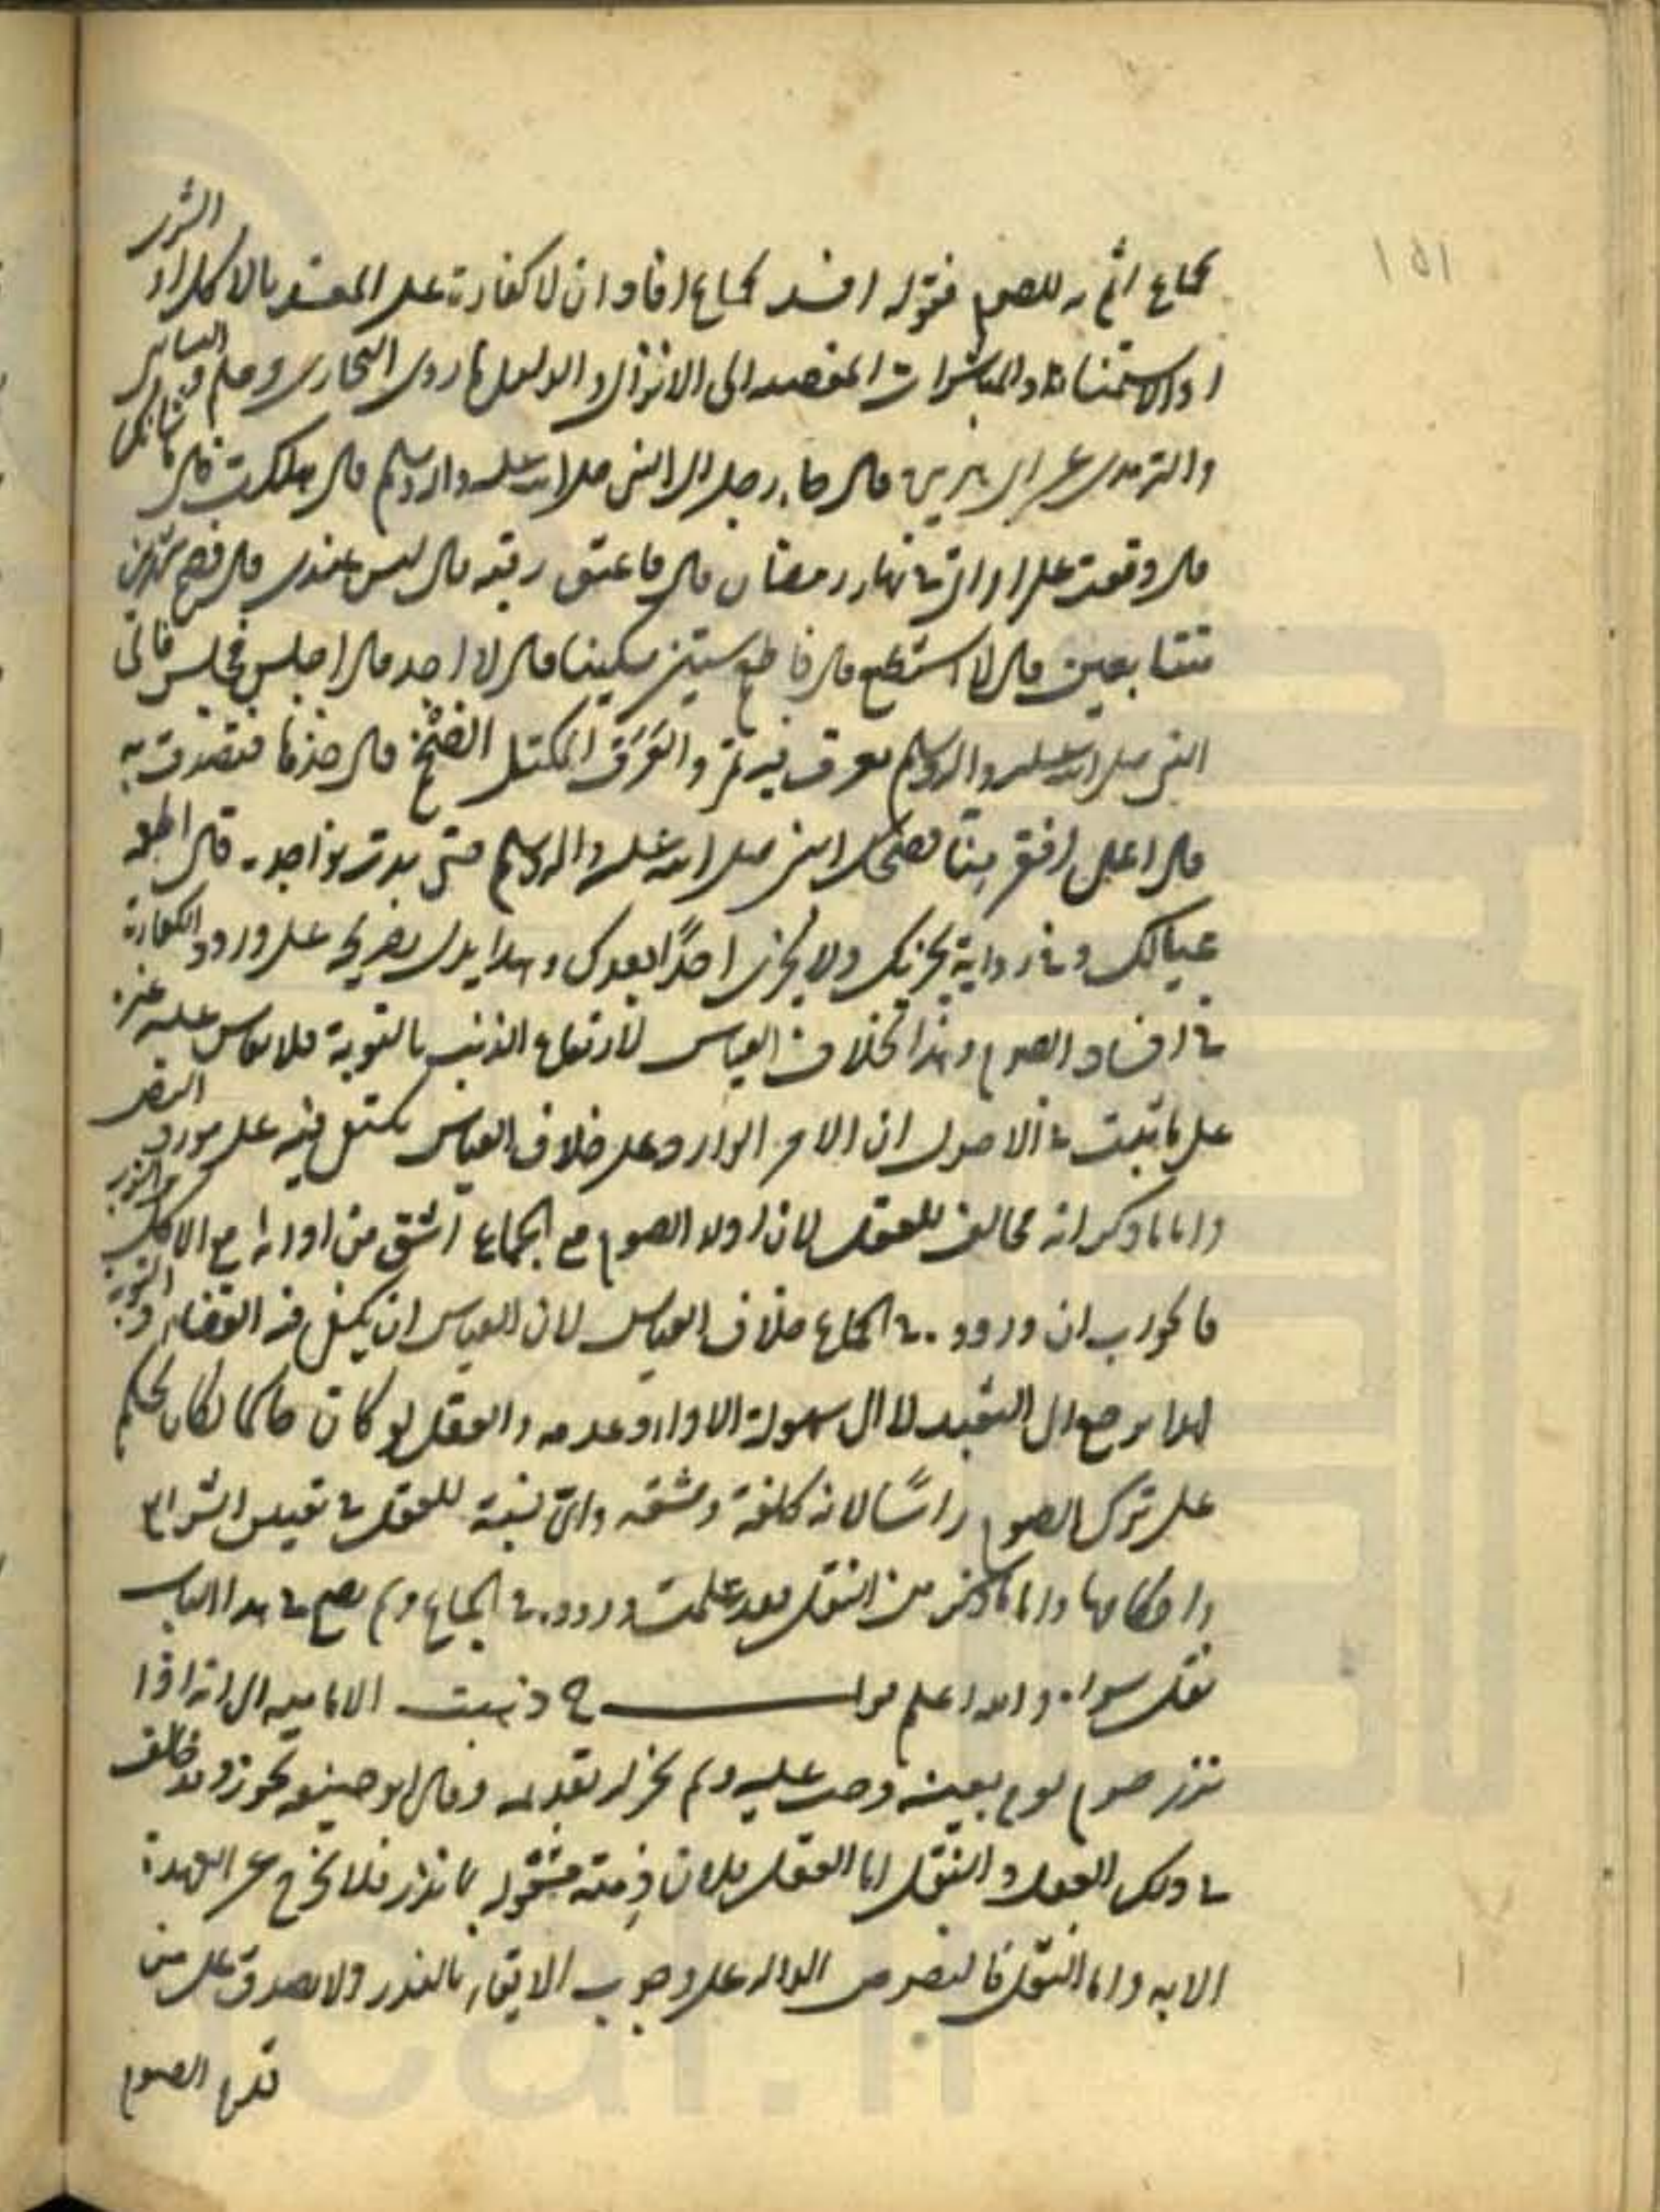 ١٥١
بجماع اثم به للصوم فقوله افسد بجماع افاد ان لا كفارة على المفسد بالاكل او الشرب
او الاستمناء والمباشرات المفضية الى الانزال والدليل ما روى البخارى ومسلم
والترمذى عن ابى هريرة قال جاء رجل الى النبى صلى الله عليه واله وسلم قال هلكت قال ما شانك
قال وقعت على امراتى فى نهار رمضان قال فاعتق رقبة قال ليس عندى قال فصم شهرين
متتابعين قال لا استطيع قال فاطعم ستين مسكينا قال لا اجد قال اجلس فجلس فاتى
النبى صلى الله عليه واله وسلم بعرق فيه تمر والعرق المكتل الضخم قال خذها فتصدق به
قال اعلى افقر منا فضحك النبى صلى الله عليه واله وسلم حتى بدت نواجده قال اطعمه
عيالك وفى رواية يجزيك ولا يجزى احدًا بعدك وهذا يدل بصريحه على ورود الكفارة
فى افساد الصوم وهذا بخلاف القياس لارتفاع الذنب بالتوبة فلا يقاس عليه غيره
على ما ثبت فى الاصول ان الامر الوارد على خلاف القياس يكتفى فيه على مورد النص
واما ما ذكر انه مخالف للعقل لان اداء الصوم مع الجماع اشق من ادائه مع الاكل والشرب
فالجواب ان وروده فى الجماع خلاف القياس لان القياس ان يكفى فيه القضاء والتوبة
انما يرجع الى التعبد لا الى سهولة الاداء وعدمه والعقل لو كان حاكما لكان يحكم
على ترك الصوم راسًا لانه كلفة ومشقة واى نسبة للعقل فى تعيين الشرائع
واحكامها واما ما ذكر من النقل فقد علمت وروده فى الجماع ولم يصح فى هذا الباب
نقل سواه والله اعلم قوله ذهبت الامامية الى انه اذا
نذر صوم يوم بعينه وجب عليه ولم يجز له تقديمه وقال ابو حنيفة يجوز وقد خالف
فى ذلك العقل والنقل اما العقل فلان ذمته مشغولة بما نذر فلا يخرج عن العهدة
الا به واما النقل فالنصوص الدالة على وجوب الايفاء بالنذر ولا يصدق على من
قدم الصوم